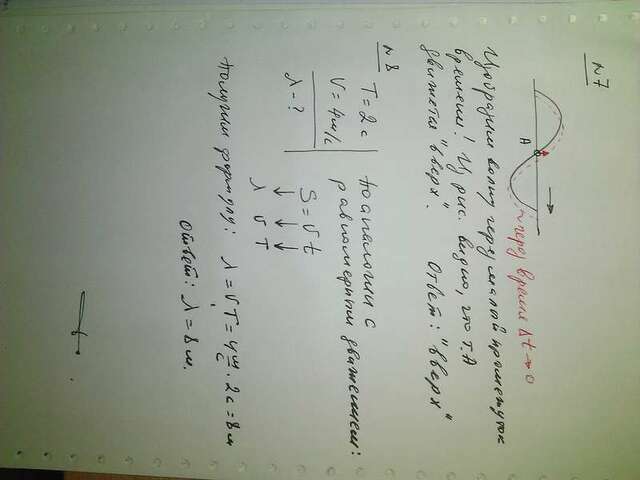 №7
A
через время Δt→0
Изобразим волну через малый промежуток
времени! Из рис. видно, что т.А
движется "вверх". Ответ: "вверх"
№8
T = 2с
V = 4м/с
λ - ?
По аналогии с
равномерным движением:
S = υ t
↓ ↓ ↓
λ υ T
Получим формулу: λ = υT = 4 м/с · 2с = 8м
Ответ: λ = 8м.